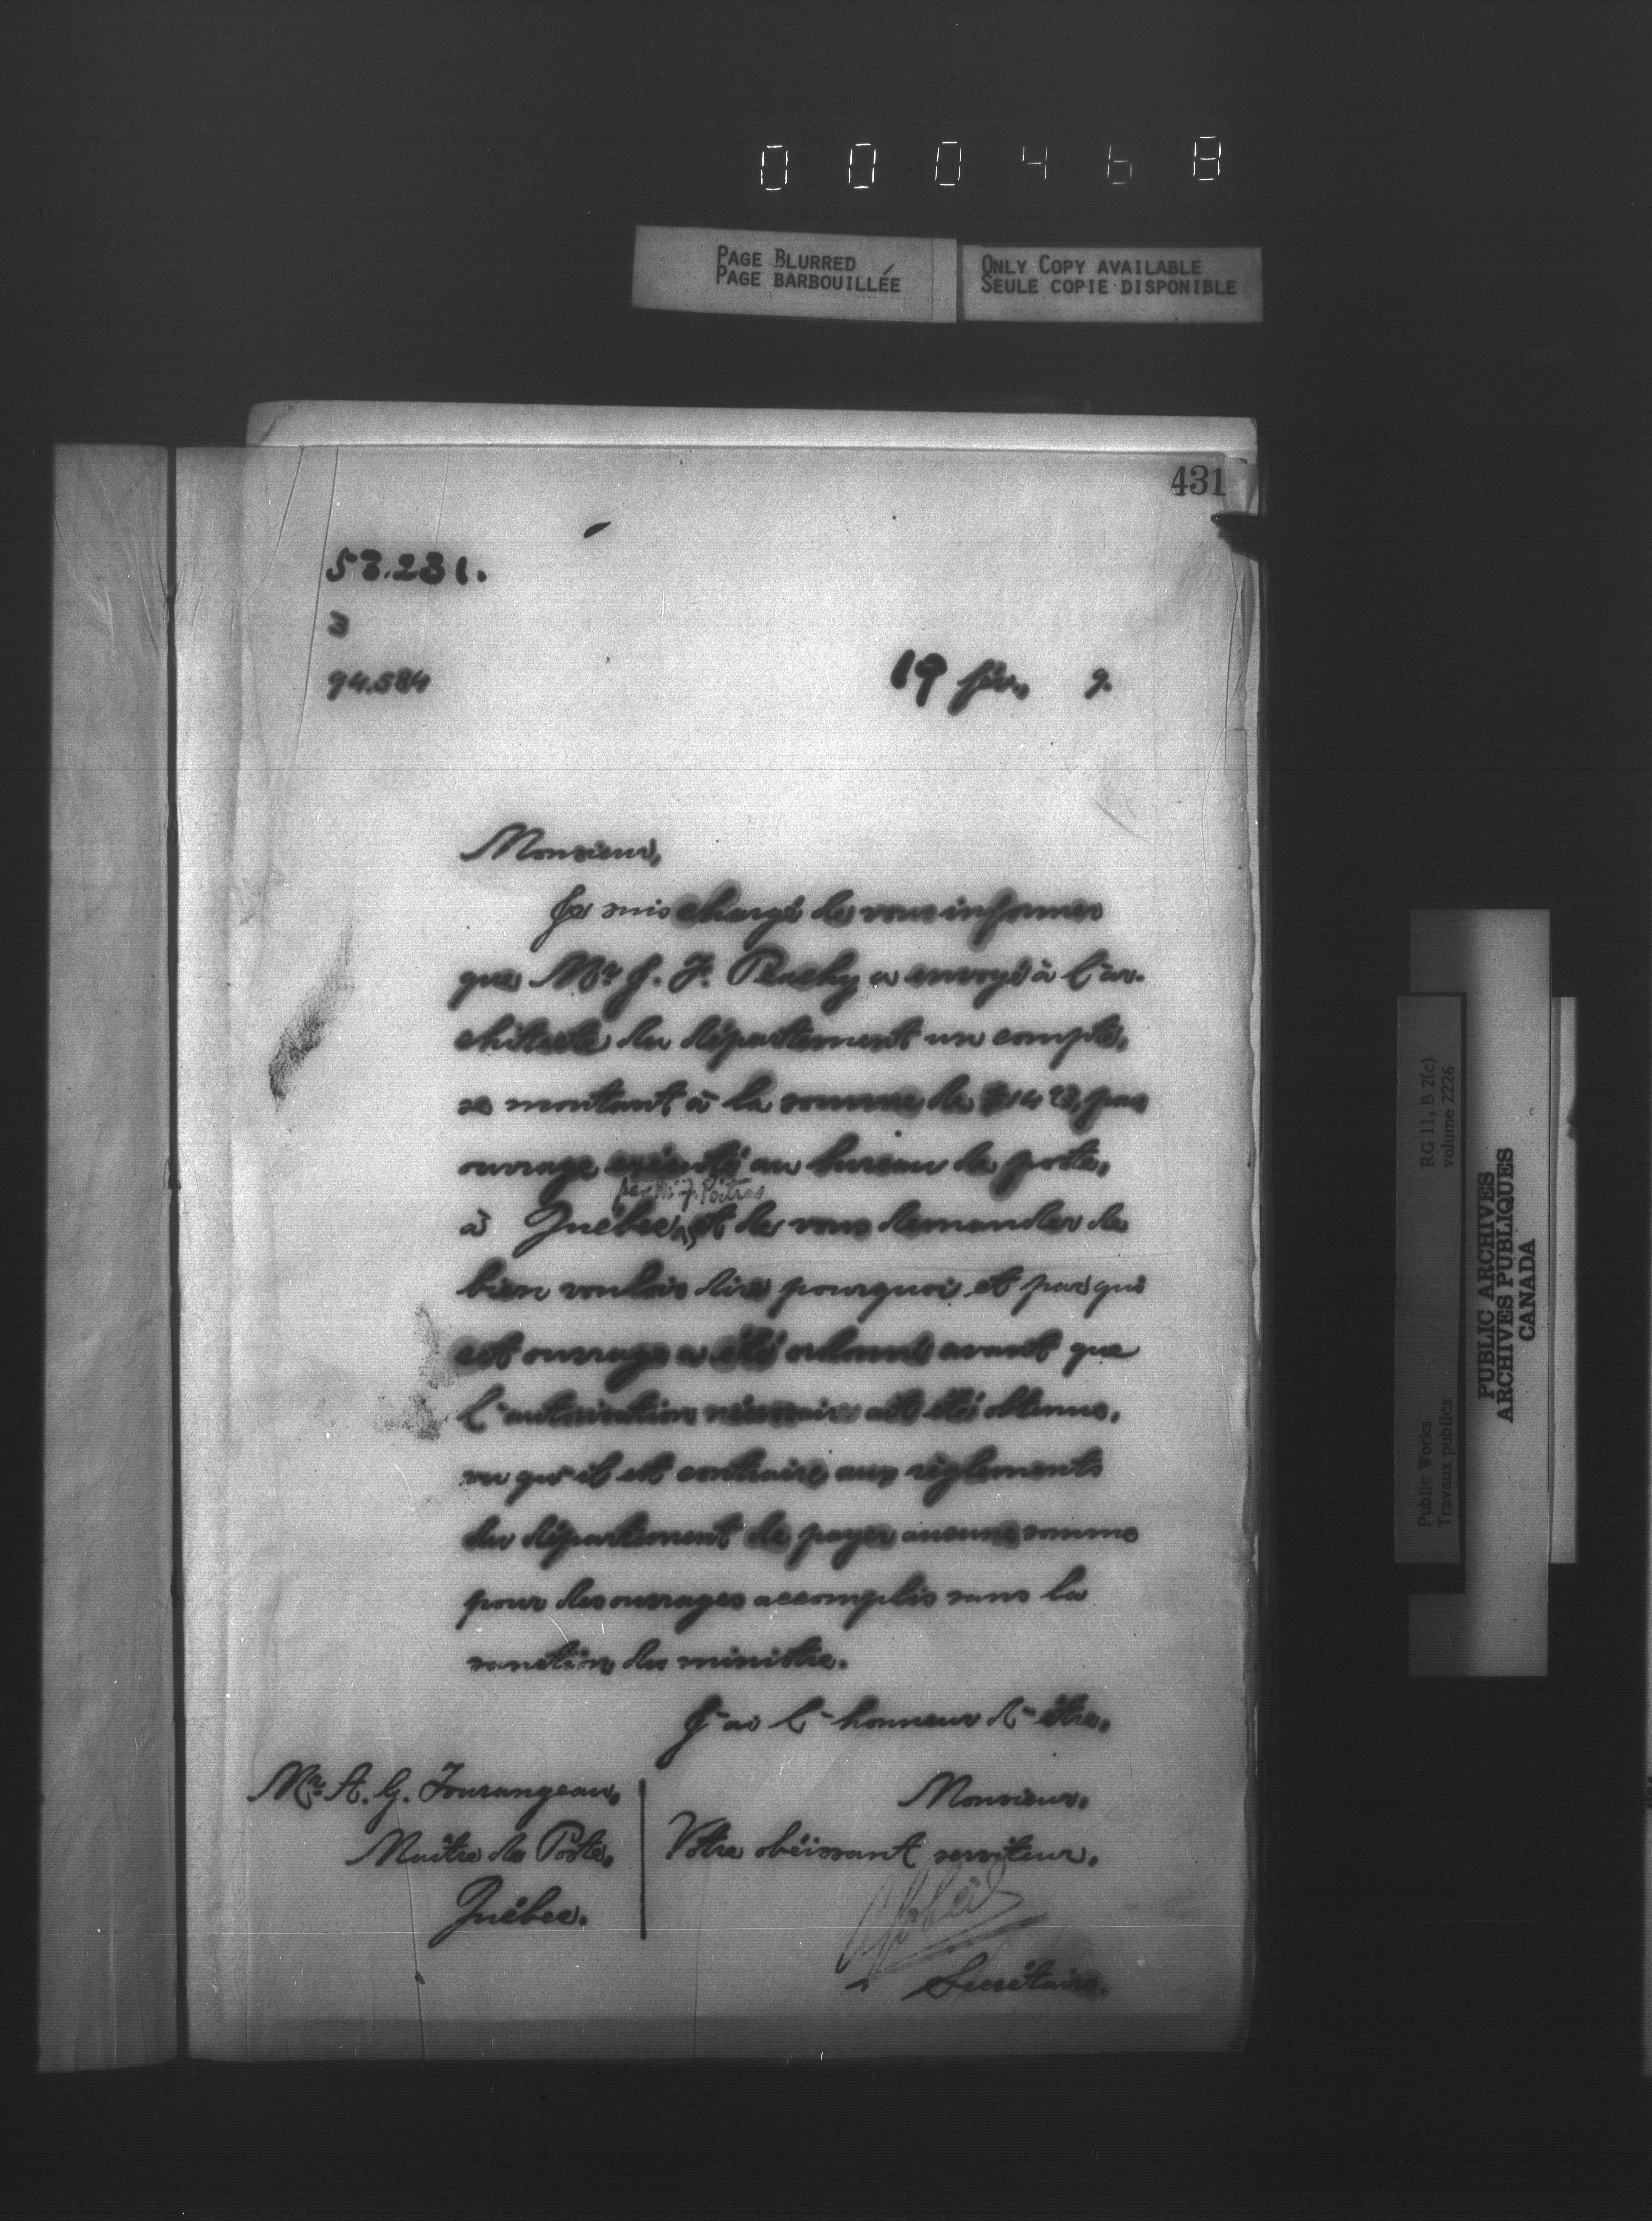 000468
PAGE BLURRED
PAGE BARBOUILLÉE
ONLY COPY AVAILABLE
SEULE COPIE DISPONIBLE
431
53.231.
3
94.584
19 fév. 9.
Monsieur,
Je suis chargé de vous informer
que Mr J. F. Peachy a envoyé à l'ar-
chitecte du département un compte,
se montant à la somme de pour
ouvrage exécuté au bureau de poste,
par Mr J. Poitras
à Québec, et de vous demander de
bien vouloir dire pourquoi et par qui
cet ouvrage a été ordonné avant que
l'autorisation nécessaire ait été obtenue,
vu qu'il est contraire aux règlements
du département de payer aucune somme
pour des ouvrages accomplis sans la
sanction du ministre.
J'ai l'honneur d'être,
Monsieur,
Votre obéissant serviteur,
Secrétaire.
Mr A. G. Tourangeau,
Maître de Poste,
Québec.
RG 11, B 2(c)
volume 2226
Public Works
Travaux publics
PUBLIC ARCHIVES
ARCHIVES PUBLIQUES
CANADA